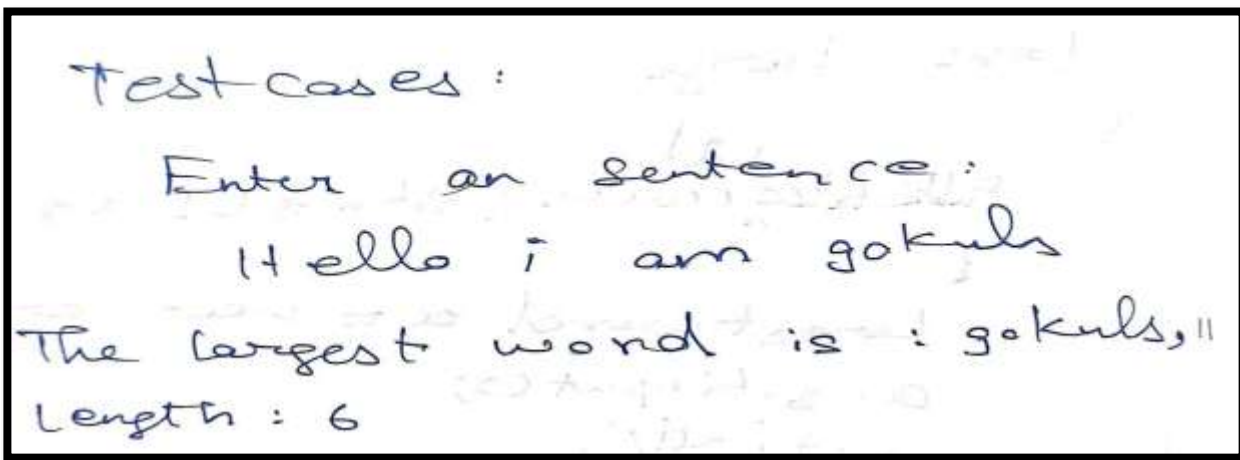 Test cases :
Enter an sentence :
Hello i am gokuls
The largest word is : gokuls, "
Length : 6